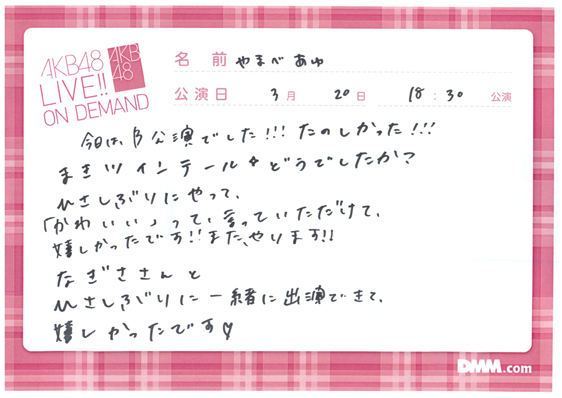 AKB48
LIVE!!
ON DEMAND
AKB
48
名 前 やまべあゆ
公演日 3月 20日 18:30 公演
今日は、B公演でした!!!たのしかった!!!
まきツインテール✦どうでしたか?
ひさしぶりにやって、
「かわいい」って、言っていただけて、
嬉しかったです!!また、やります!!
なぎささんと
ひさしぶりに一緒に出演できて、
嬉しかったです♡
DMM.com